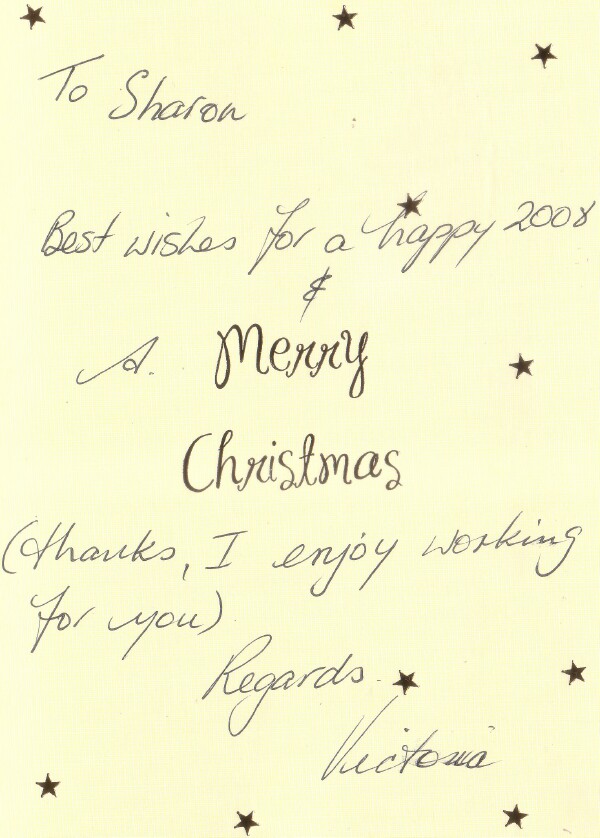 To Sharon
Best wishes for a happy 2008
&
A. Merry
Christmas
(thanks, I enjoy working
for you)
Regards
Victoria